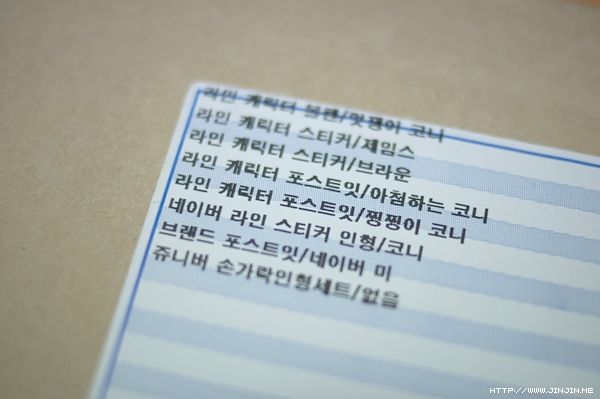 라인 캐릭터 볼펜/멋쟁이 코니
라인 캐릭터 스티커/제임스
라인 캐릭터 스티커/브라운
라인 캐릭터 포스트잇/아첨하는 코니
라인 캐릭터 포스트잇/찡찡이 코니
네이버 라인 스티커 인형/코니
브랜드 포스트잇/네이버 미
쥬니버 손가락인형세트/없음
HTTP://WWW.JINJIN.ME